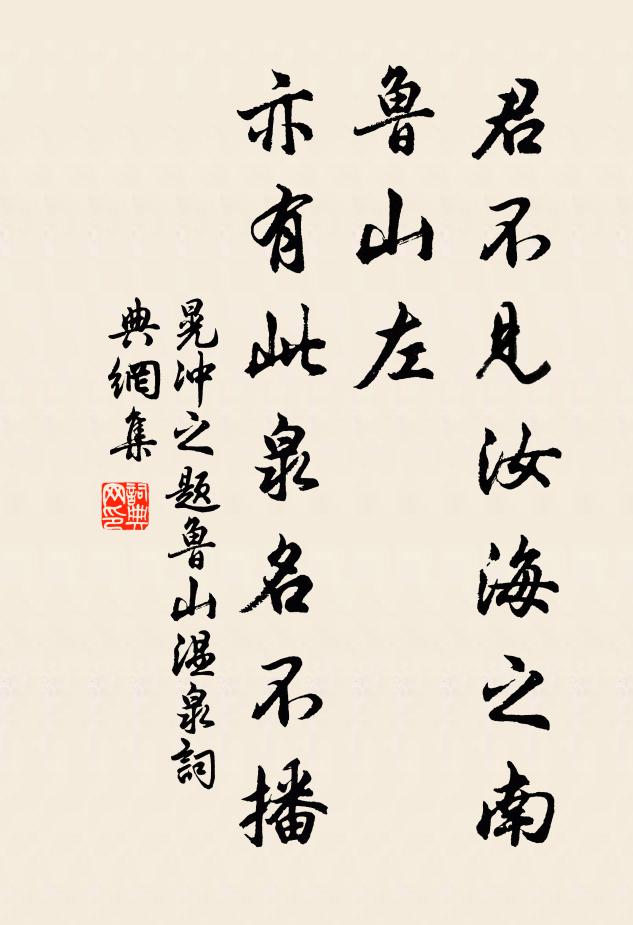 君不見汝海之南
魯山左
亦有此泉名不播
晁沖之題魯山温泉詞
典網集
詞典
网印